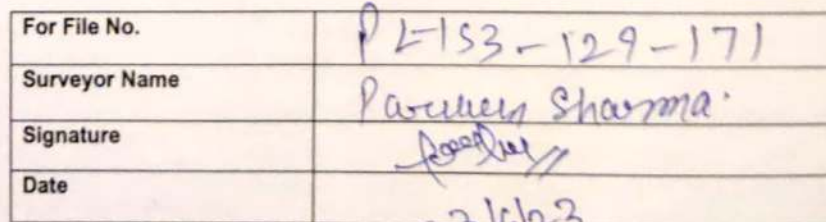 For File No. PL-153-129-171
Surveyor Name Parveen Sharma.
Signature
Date